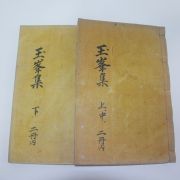 玉峯集
上中
二冊內
玉峯集
下
二冊內